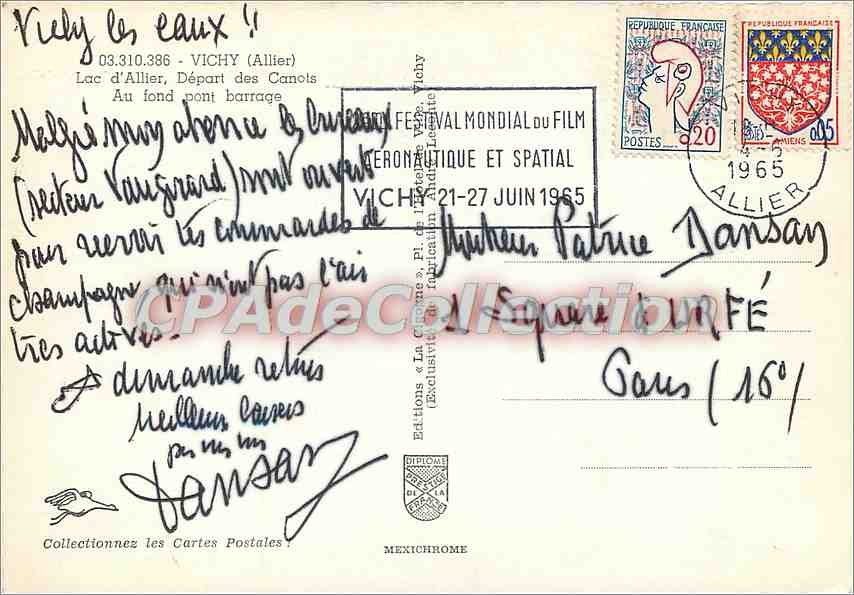 Vichy les eaux !!
03.310.386 - VICHY (Allier)
Lac d'Allier, Départ des Canots
Au fond pont barrage
Malgré mon absence les bureaux
(secteur Vaugirard) sont ouverts
pour recevoir les commandes de
champagne qui n'ont pas l'air
très actives.
A dimanche
meilleurs baisers
Dansan
Collectionnez les Cartes Postales !
Editions « La Cigogne », Pl. de l'Hôtel de Ville, Vichy
(Exclusivité de fabrication André Leconte)
DIPLOME
PRESTIGE
DE LA
FRANCE
MEXICHROME
FESTIVAL MONDIAL DU FILM
AÉRONAUTIQUE ET SPATIAL
VICHY 21-27 JUIN 1965
REPUBLIQUE FRANÇAISE
POSTES 0,20
REPUBLIQUE FRANÇAISE
POSTES 0,05
AMIENS
1965
ALLIER
Monsieur Patrice Dansan
1 Square d'URFÉ
Paris (16e)
CPAdeCollection